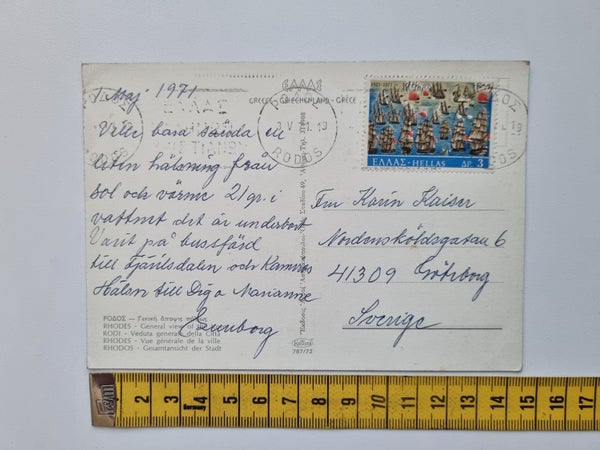 1 Maj 1971
Vill bara sända en
liten hälsning från
sol och värme 21gr. i
vattnet det är underbart
Varit på bussfärd
till Fjärilsdalen och Kamiros
Hälsn till Dig o Marianne
ΡΟΔΟΣ — Γενική ἄποψις πόλεως
RHODES - General view of
RODI - Veduta generale della Città
RHODES - Vue générale de la ville
RHODOS - Gesamtansicht der Stadt
ΕΛΛΑΣ
GREECE - GRIECHENLAND - GRECE
ΕΛΛΑΣ
RODOS
V 13
RODOS
787/72
ΕΛΛΑΣ-HELLAS ΔΡ. 3
Fru Karin Kaiser
Nordensköldsgatan 6
41309 Göteborg
Sverige
2 3 4 5 6 7 8 9 10 11 12 13 14 15 16 17
Germany